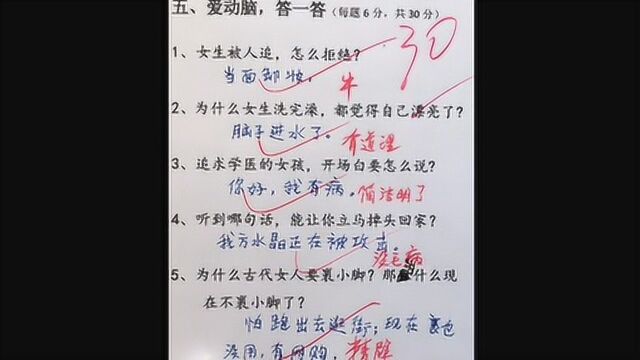 五、爱动脑，答一答（每题6分，共30分）
30
1、女生被人追，怎么拒绝？
当面卸妆。 牛
2、为什么女生洗完澡，都觉得自己漂亮了？
脑子进水了。 有道理
3、追求学医的女孩，开场白要怎么说？
你好，我有病。 简洁明了
4、听到哪句话，能让你立马掉头回家？
我方水晶正在被攻击。 没毛病
5、为什么古代女人要裹小脚？那什么现
在不裹小脚了？
怕跑出去逛街；现在裹也
没用，有网购， 精辟